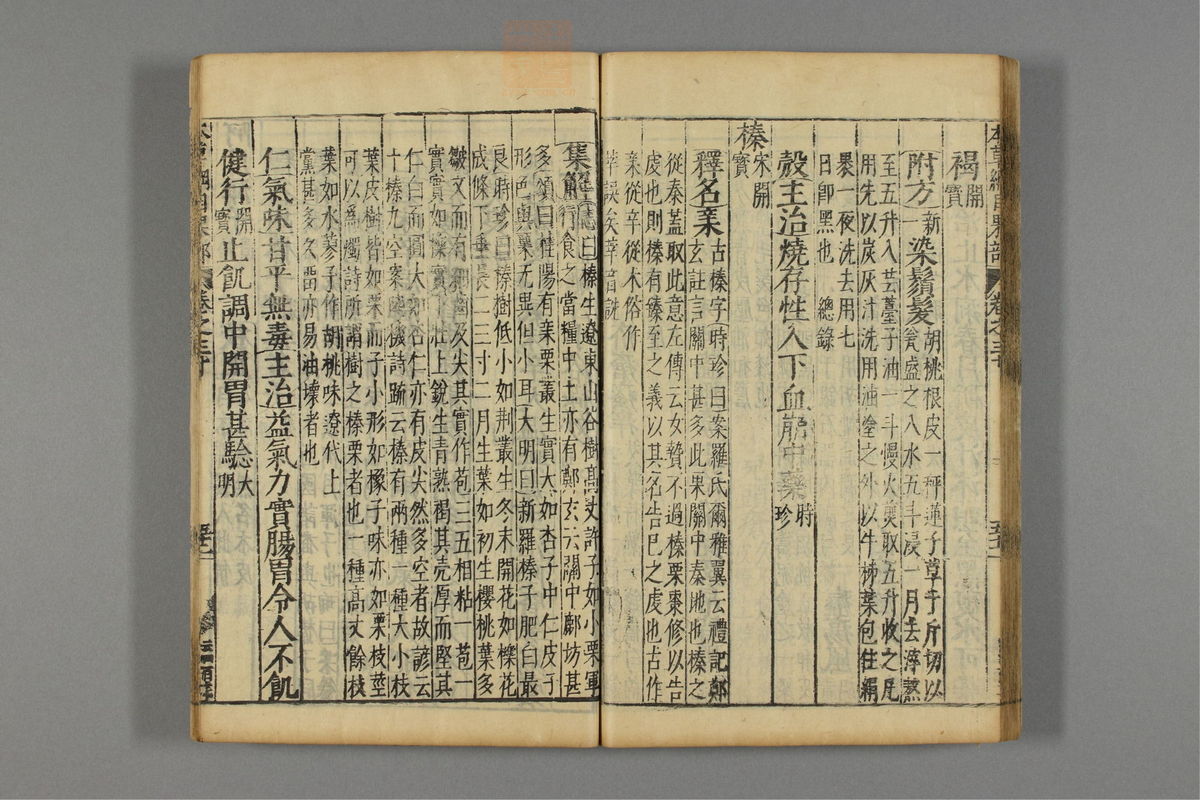 褐開寶
附方新一染鬚髮胡桃根皮一秤蓮子草十斤切以
至五升入芸薹子油一斗慢火煎取五升收之凡
用先以炭灰汁洗用油塗之外以牛柿葉包住絹
裹一夜洗去用七
日即黑也　總錄
殼主治燒存性入下血崩中藥時珍
榛宋開寶
釋名亲古榛字時珍曰案羅氏爾雅翼云禮記鄭
玄註言關中甚多此果關中秦地也榛之
從秦蓋取此意左傳云女贄不過榛栗棗修以告
虔也則榛有臻至之義以其名告己之虔也古作
亲從辛從木俗作
莘誤矣莘音詵
集解志曰榛生遼東山谷樹高丈許子如小栗軍
行食之當糧中土亦有鄭玄云關中鄜坊甚
多頌曰桂陽有亲栗叢生實大如杏子中仁皮子
形色與栗无異但小耳大明曰新羅榛子肥白最
良時珍曰榛樹低小如荆叢生冬末開花如櫟花
成條下垂長二三寸二月生葉如初生櫻桃葉多
皺文而有細齒及尖其實作苞三五相粘一苞一
實實如櫟實下壯上銳生青熟褐其壳厚而堅其
仁白而圓大如杏仁亦有皮尖然多空者故諺云
十榛九空案陸機詩疏云榛有兩種一種大小枝
葉皮樹皆如栗而子小形如橡子味亦如栗枝莖
可以爲燭詩所謂樹之榛栗者也一種高丈餘枝
葉如水蓼子作胡桃味遼代上
黨甚多久留亦易油壞者也
仁氣味甘平無毒主治益氣力實腸胃令人不飢
健行開寶止飢調中開胃甚驗大明